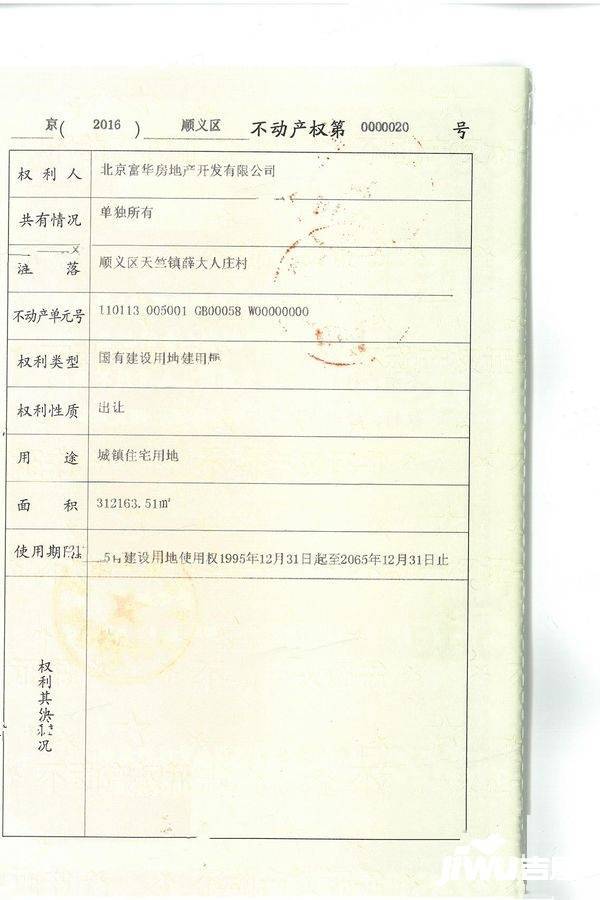 京( 2016 ) 顺义区 不动产权第 0000020 号
权利人 北京富华房地产开发有限公司
共有情况 单独所有
落 顺义区天竺镇薛大人庄村
不动产单元号 110113 005001 GB00058 W00000000
权利类型 国有建设用地使用权
权利性质 出让
用途 城镇住宅用地
面积 312163.51㎡
使用期 建设用地使用权1995年12月31日起至2065年12月31日止
权利其 况
jiwu吉屋